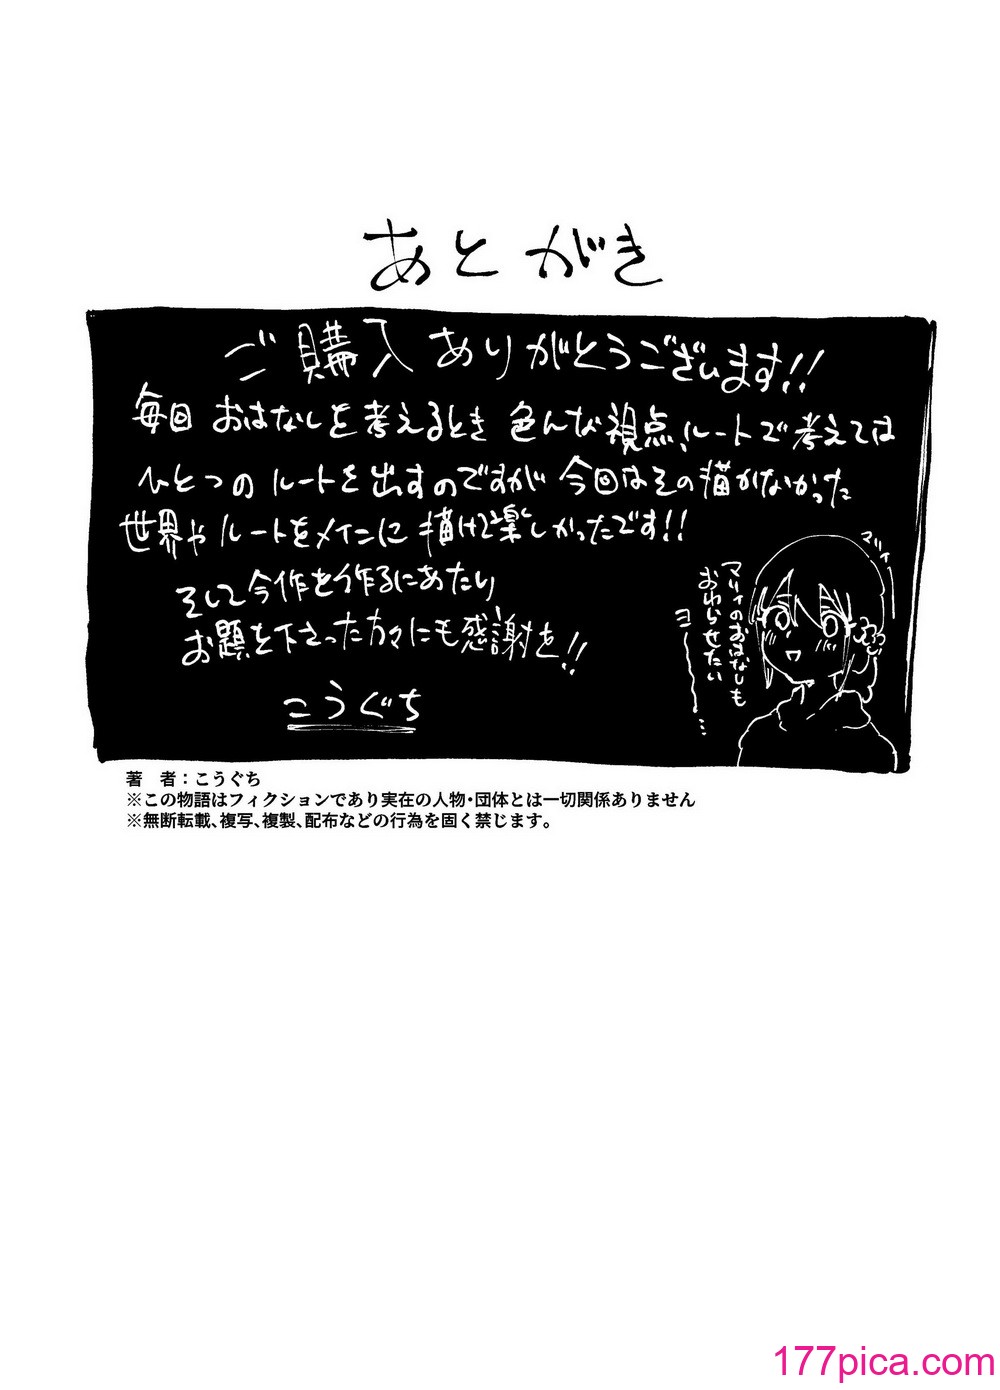 あとがき
ご購入ありがとうございます!!
毎回おはなしを考えるとき色んな視点、ルートで考えては
ひとつのルートを出すのですが今回はその描かなかった
世界やルートをメインに描けて楽しかったです!!
そして今作を作るにあたり
お題を下さった方々にも感謝を!!
こうぐち
マリィー
マリィのおはなしも
おわらせたい
ヨー……
著　者：こうぐち
※この物語はフィクションであり実在の人物・団体とは一切関係ありません
※無断転載、複写、複製、配布などの行為を固く禁じます。
177pica.com